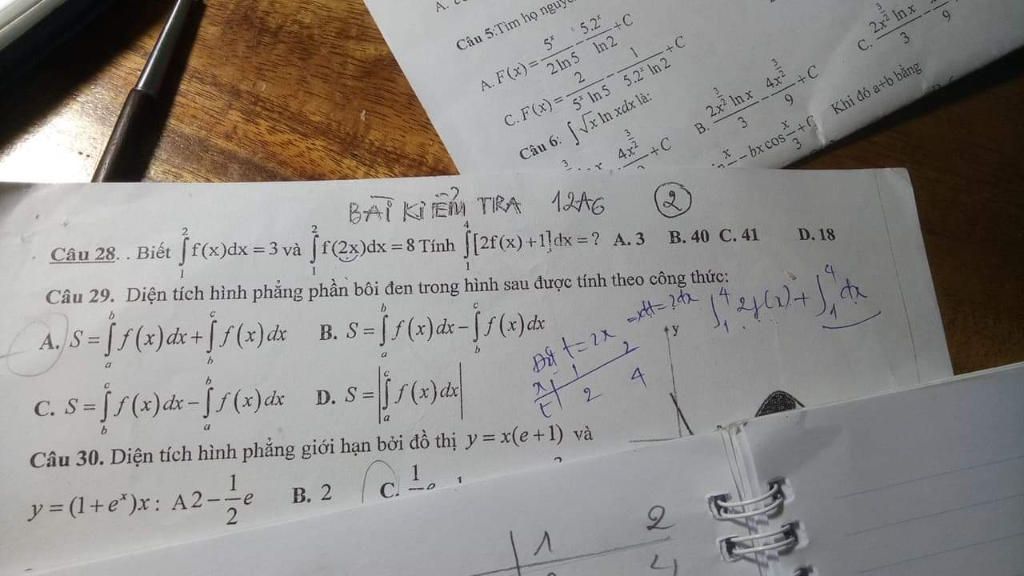 Câu 5:Tìm họ nguyê
A. F(x) = 5ˣ/(2ln5) - 5.2ˣ/ln2 + C
C. F(x) = 2/(5ˣ ln5) - 1/(5.2ˣ ln2) + C
Câu 6: ∫√x ln xdx là:
4x^(3/2) + C
B. (2x^(3/2) ln x)/3 - 4x^(3/2)/9 + C
C. 2x^(3/2) ln x/3
9
- bx cos x/3 +
Khi đó a+b bằng
BÀI KIỂM TRA 12A6 2
Câu 28. . Biết ∫₁² f(x)dx = 3 và ∫₁² f(2x)dx = 8 Tính ∫₁⁴ [2f(x) + 1]dx = ? A. 3 B. 40 C. 41 D. 18
Câu 29. Diện tích hình phẳng phần bôi đen trong hình sau được tính theo công thức:
A. S = ∫ₐᵇ f(x)dx + ∫_b^c f(x)dx B. S = ∫ₐᵇ f(x)dx - ∫_b^c f(x)dx
C. S = ∫_b^c f(x)dx - ∫ₐᵇ f(x)dx D. S = |∫ₐᶜ f(x)dx|
Đặt t = 2x ⇒ dt = 2dx
x 1 2
t 2 4
∫₁⁴ 2f(x) + ∫₁⁴ dx
y
Câu 30. Diện tích hình phẳng giới hạn bởi đồ thị y = x(e + 1) và
y = (1 + eˣ)x : A 2 - 1/2 e B. 2 C.
1 2
4